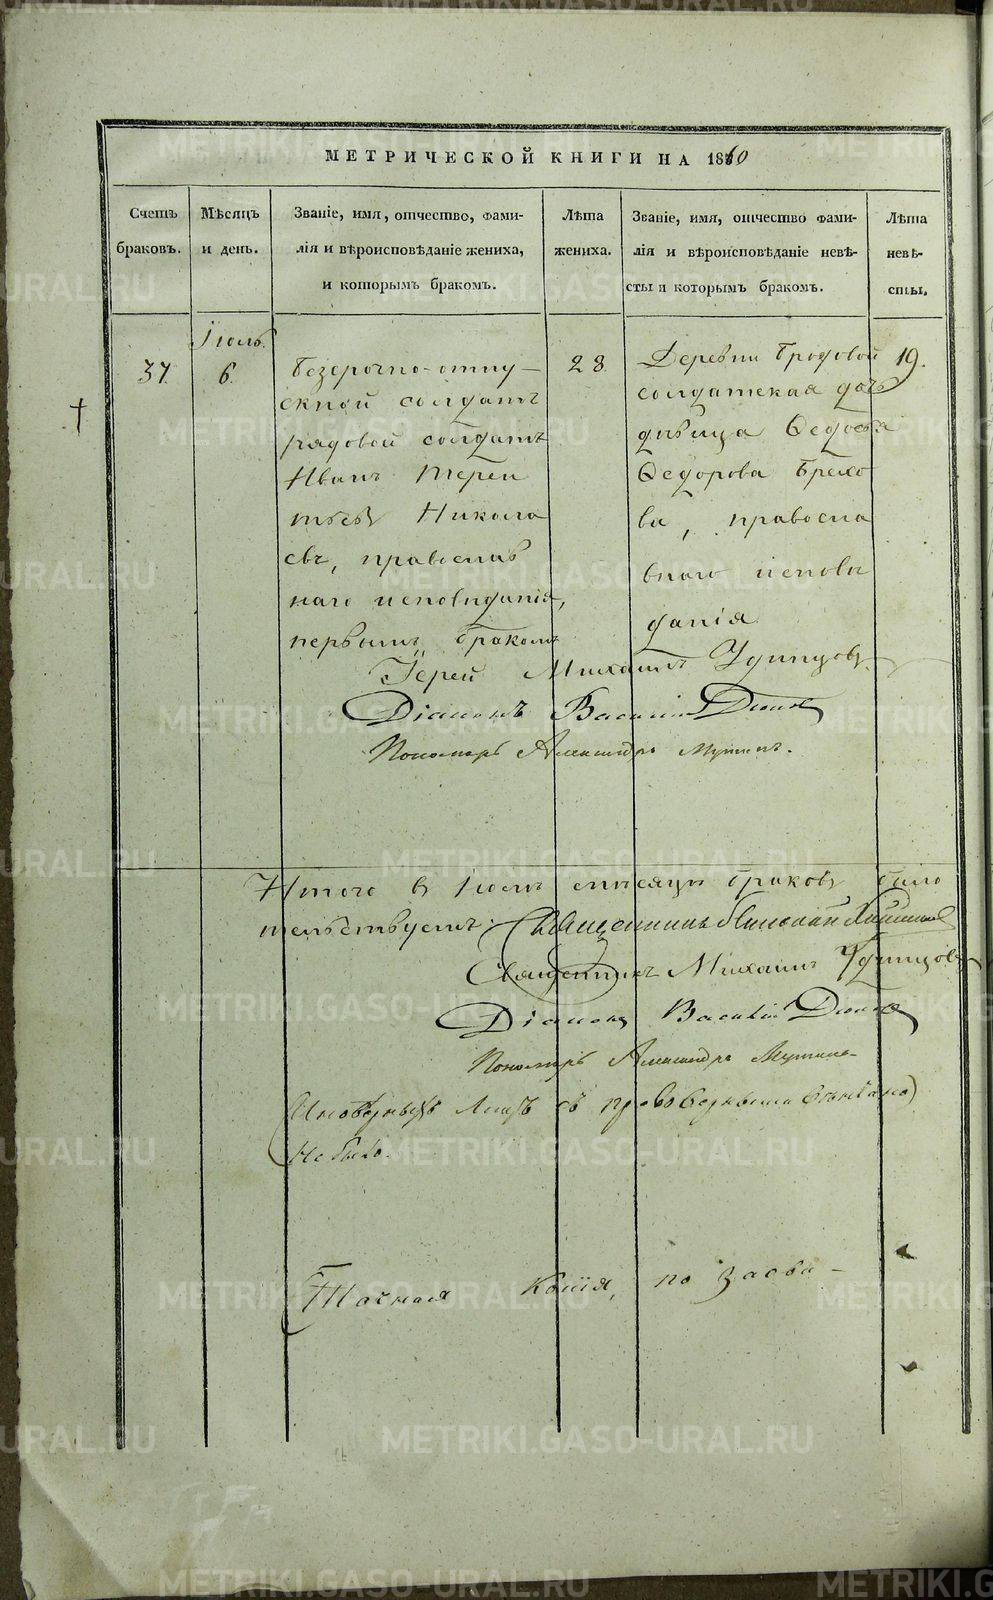 МЕТРИЧЕСКОЙ КНИГИ НА 1860
Счетъ браковъ.
Мѣсяцъ и день.
Званіе, имя, отчество, фами-
лія и вѣроисповѣданіе жениха,
и которымъ бракомъ.
Лѣта
жениха.
Званіе, имя, отчество фами-
лія и вѣроисповѣданіе невѣ-
сты и которымъ бракомъ.
Лѣта
невѣ-
сты.
37.
Іюль
6.
безсрочно-отпу-
скной солдатъ
рядовой солдатъ
Иванъ Терен
тьевъ Никола
евъ, православ
наго исповѣданія,
первымъ бракомъ
28
Деревни Бродовой
солдатская дочь
дѣвица Ѳедосья
Ѳедорова Брехо
ва, правосла
внаго исповѣ
данія
19.
Іерей Михаилъ Удинцовъ
Діаконъ Василій
Пономарь Александръ
Итого въ Іюлѣ мѣсяцѣ браковъ было
тельствуетъ: Священникъ Николай
Священникъ Михаилъ Удинцовъ
Діаконъ Василій
Пономарь Александръ
Иновѣрныхъ лицъ съ
не было.
Точная копія, по засви-
METRIKI.GASO-URAL.RU